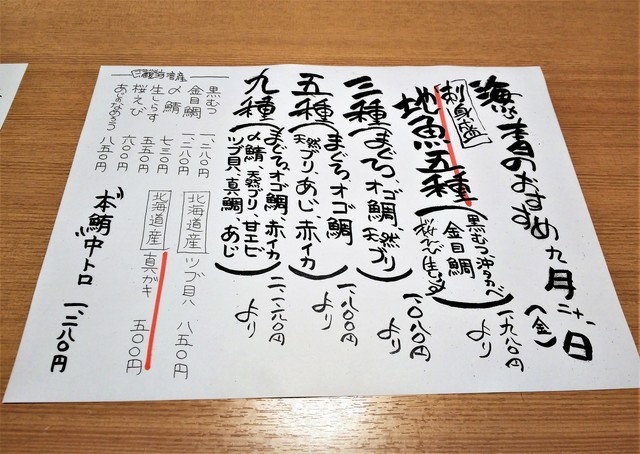 海青のおすすめ 九月二十一日(金)
刺身盛
地魚五種(黒むつ、沖タカベ 金目鯛 桜えび、生しらす) 一、九八〇円より
三種(まぐろ、オゴ鯛、天然ブリ) 一、〇八〇円より
五種(まぐろ、オゴ鯛 天然ブリ、あじ、赤イカ) 一、八〇〇円より
九種(まぐろ、オゴ鯛、赤イカ 〆鯖、天然ブリ、甘エビ ツブ貝、真鯛、あじ) 二、二八〇円より
黒むつ 一、二八〇円
金目鯛 一、二八〇円
〆鯖 七三〇円
生しらす 五五〇円
桜えび 六〇〇円
あじのなめろう 八五〇円
北海道産 ツブ貝 八五〇円
北海道産 真ガキ 五〇〇円
本鮪中トロ 一、二八〇円